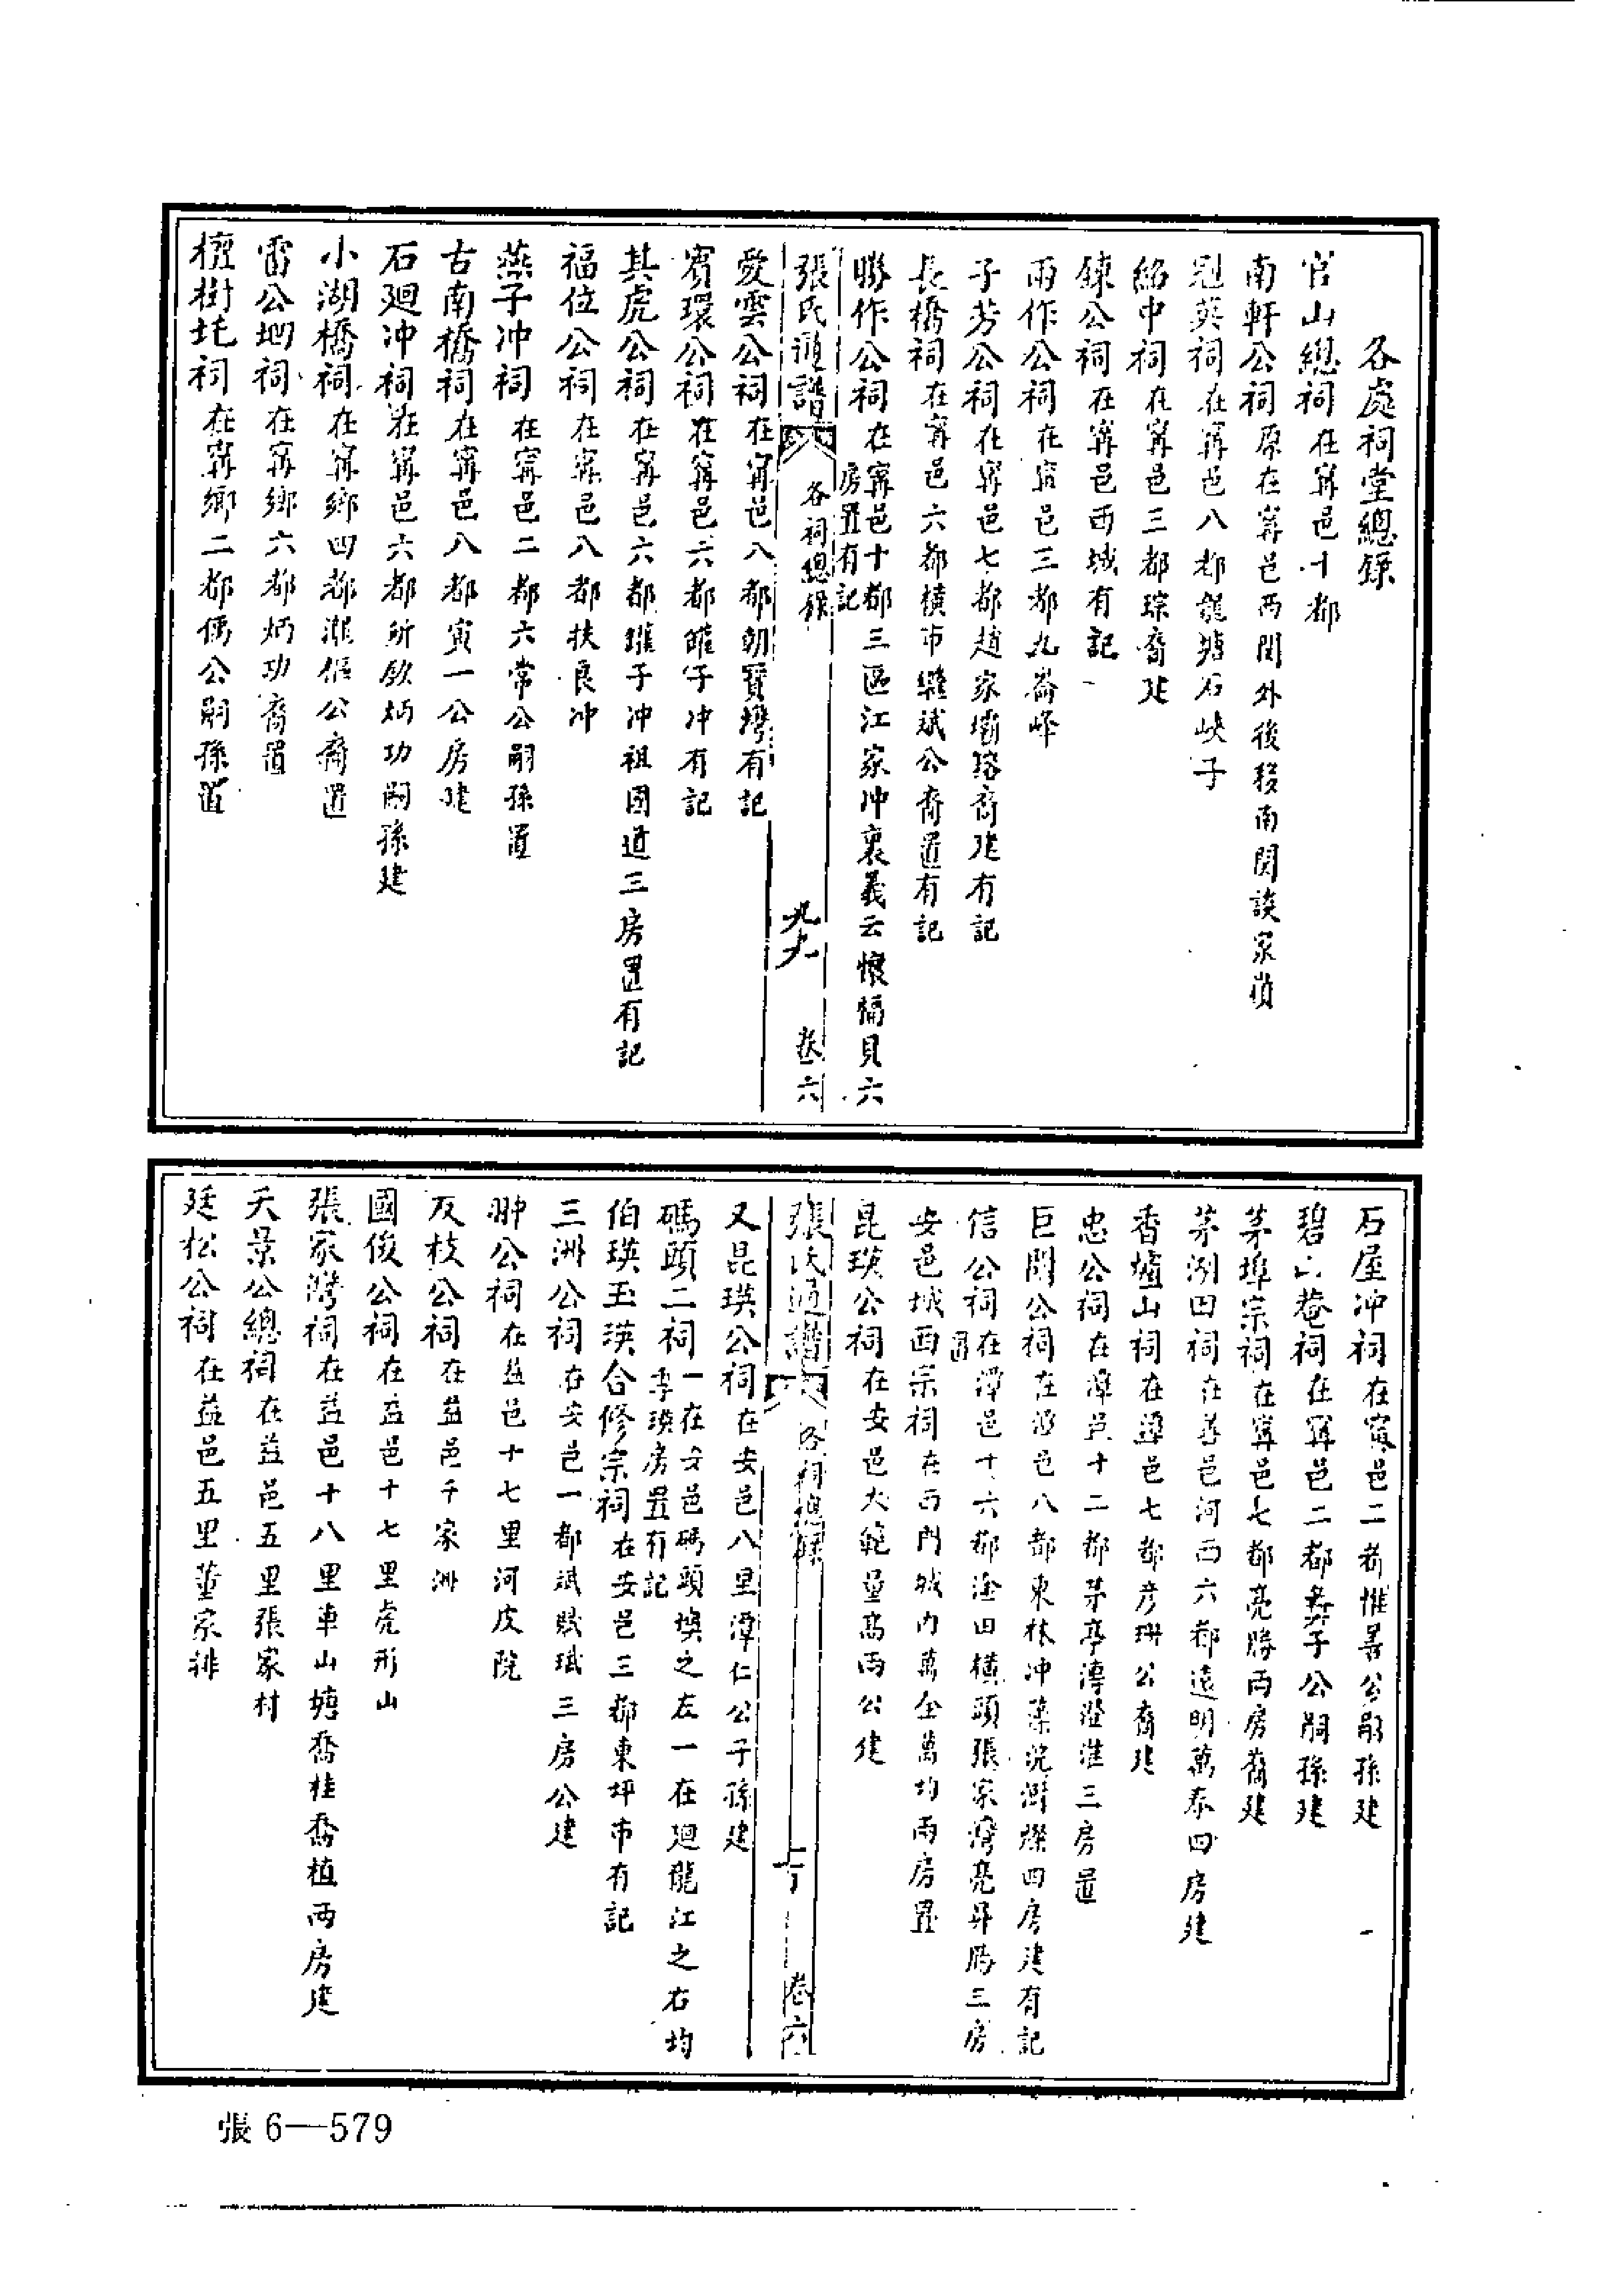 各處祠堂總錄
官山總祠在寗邑十都
南軒公祠原在寗邑西関外後移南関談家
冠英祠在寗邑八都龍塘石峽子
紹中祠在寗邑三都琮裔建
鍊公祠在寗邑西城有記
雨作公祠在寗邑三都九崙峰
子芳公祠在寗邑七都趙家壩珞裔建有記
長橋祠在寗邑六都橫市繼斌公裔置有記
勝作公祠在寗邑十都三區江家冲裏義云懷福貝六房置有記
張氏通譜
各祠總錄
卷六
愛雲公祠在寗邑八都朝寶灣有記
賓環公祠在寗邑六都罐子冲有記
其虎公祠在寗邑六都罐子冲祖國道三房置有記
福位公祠在寗邑八都扶良冲
燕子冲祠在寗邑二都六常公嗣孫置
古南橋祠在寗邑八都寅一公房建
石廻冲祠在寗邑六都所欽炳功嗣孫建
小湖橋祠在寗鄉四都公裔置
雷公祠在寗鄉六都炳功裔置
檀樹圫祠在寗鄉二都公嗣孫置
石屋冲祠在寗邑二都惟善公嗣孫建
碧山菴祠在寗邑二都子公嗣孫建
茅埠宗祠在寗邑七都亮勝两房裔建
茅湖田祠在善邑河西六都遠明萬泰四房建
香爐山祠在潭邑七都彦珊公裔建
忠公祠在潭邑十二都茅亭溥澄淮三房置
巨閣公祠在潭邑八都東林冲藻浣澍燦四房建有記
信公祠在潭邑十六都淦田橫頭張家灣亮昇勝三房置
安邑城西宗祠在西門城内萬全萬均两房置
昆瑛公祠在安邑大範量高两公建
張氏通譜
各祠總錄
卷六
又昆瑛公祠在安邑八里潭仁公子孫建
碼頭二祠一在安邑碼頭墺之左一在廻龍江之右均李瑛房置有記
伯瑛玉瑛合修宗祠在安邑三都東坪市有記
三洲公祠在安邑一都斌賦珷三房公建
翀公祠在益邑十七里河皮院
友枝公祠在益邑千家洲
國俊公祠在益邑十七里虎形山
張家灣祠在益邑十八里車山塘喬桂喬植两房建
天景公總祠在益邑五里張家村
廷松公祠在益邑五里董家排
張6—579